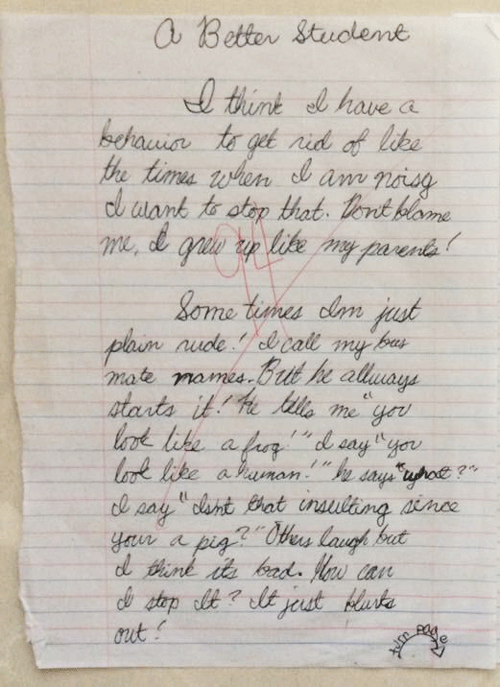 A Better Student
I think I have a
behavior to get rid of like
the times when I am noisy
I want to stop that. Dont blame
me, I grew up like my parents!
94
Some times Im just
plain rude! I call my bus
mate names. Butt he allways
starts it! He tells me "you
look like a frog!" I say "you
look like a human!" he says "what?"
I say "Isnt that insulting since
your a pig?" Others laugh but
I think its bad. How can
I stop It? It just blurts
out!
turn page